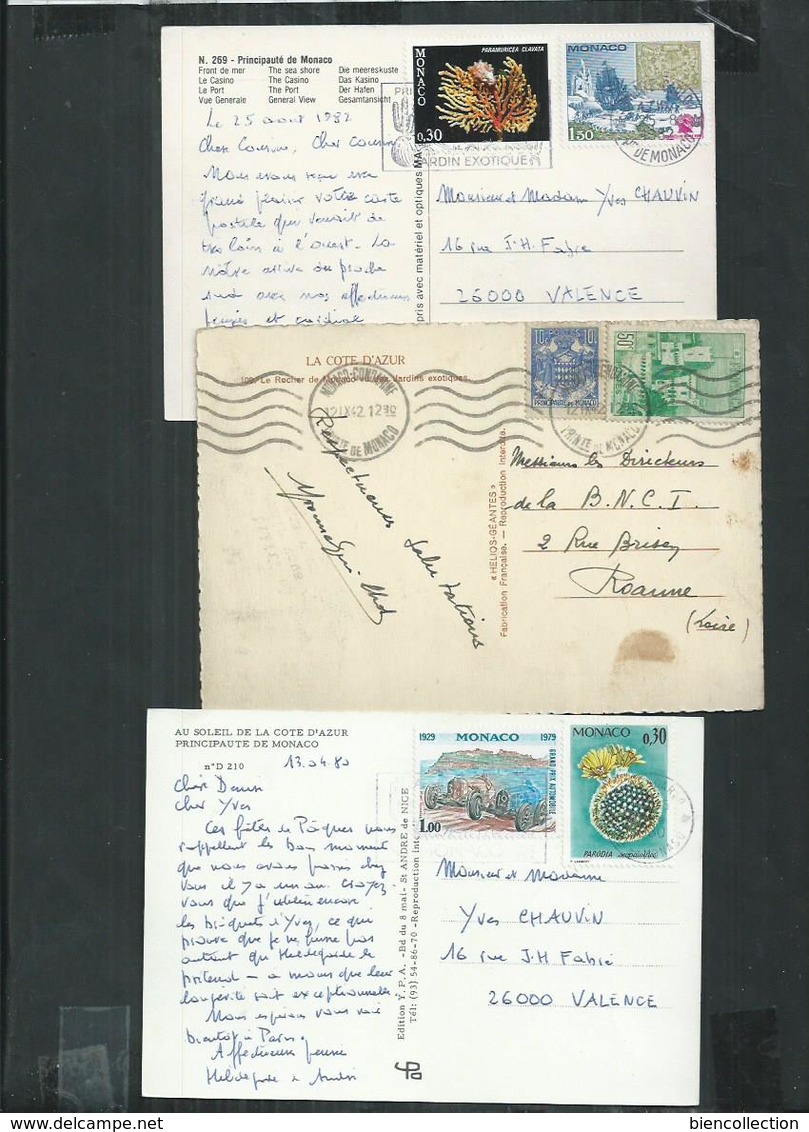 N. 269 - Principauté de Monaco
Front de mer The sea shore Die meereskuste
Le Casino The Casino Das Kasino
Le Port The Port Der Hafen
Vue Generale General View Gesamtansicht
Le 25 aout 1982
Chere Cousine, Cher Cousin
Nous avons reçu avec
grand plaisir votre carte
postale qui venait de
très loin à l'ouest. La
nôtre arrive du proche
sud avec nos affectueuses
pensées et cordial
pris avec matériel et optiques
PARAMURICEA CLAVATA
MONACO
0,30
JARDIN EXOTIQUE
MONACO
1.30
DE MONACO
Monsieur et Madame Yves CHAUVIN
16 rue J.H. Fabre
26000 VALENCE
LA COTE D'AZUR
109. Le Rocher de Monaco vu des Jardins exotiques.
MONACO-CONDAMINE
12 IX 42 12 30
PRINTÉ DE MONACO
10c POSTES 10c
PRINCIPAUTÉ DE MONACO
50c
PRINTÉ DE MONACO
Respectueuses salutations
« HELIOS-GÉANTES »
Fabrication Française. — Reproduction Interdite.
Messieurs les Directeurs
de la B.N.C.I.
2 Rue Brison
Roanne
(Loire)
AU SOLEIL DE LA COTE D'AZUR
PRINCIPAUTE DE MONACO
n° D 210
13.04.80
Cher Yves
Ces fêtes de Pâques nous
rappellent les bons moments
que nous avons passés chez
vous il y a un an. Croyez
vous que j'utilise encore
les briquets d'Yves, ce qui
prouve que je ne fume pas
autant que Hildegarde le
prétend - à moins que leur
longévité soit exceptionnelle.
Nous espérons vous voir
bientôt à Paris.
Affectueuses pensées
Edition Y.P.A. - Bd du 8 mai - St ANDRE de NICE
Tél: (93) 54-86-70 - Reproduction inter
1929 MONACO 1979
GRAND PRIX AUTOMOBILE
1.00
MONACO
0,30
PARODIA
Monsieur et Madame
Yves CHAUVIN
16 rue J.H Fabre
26000 VALENCE
biencollection